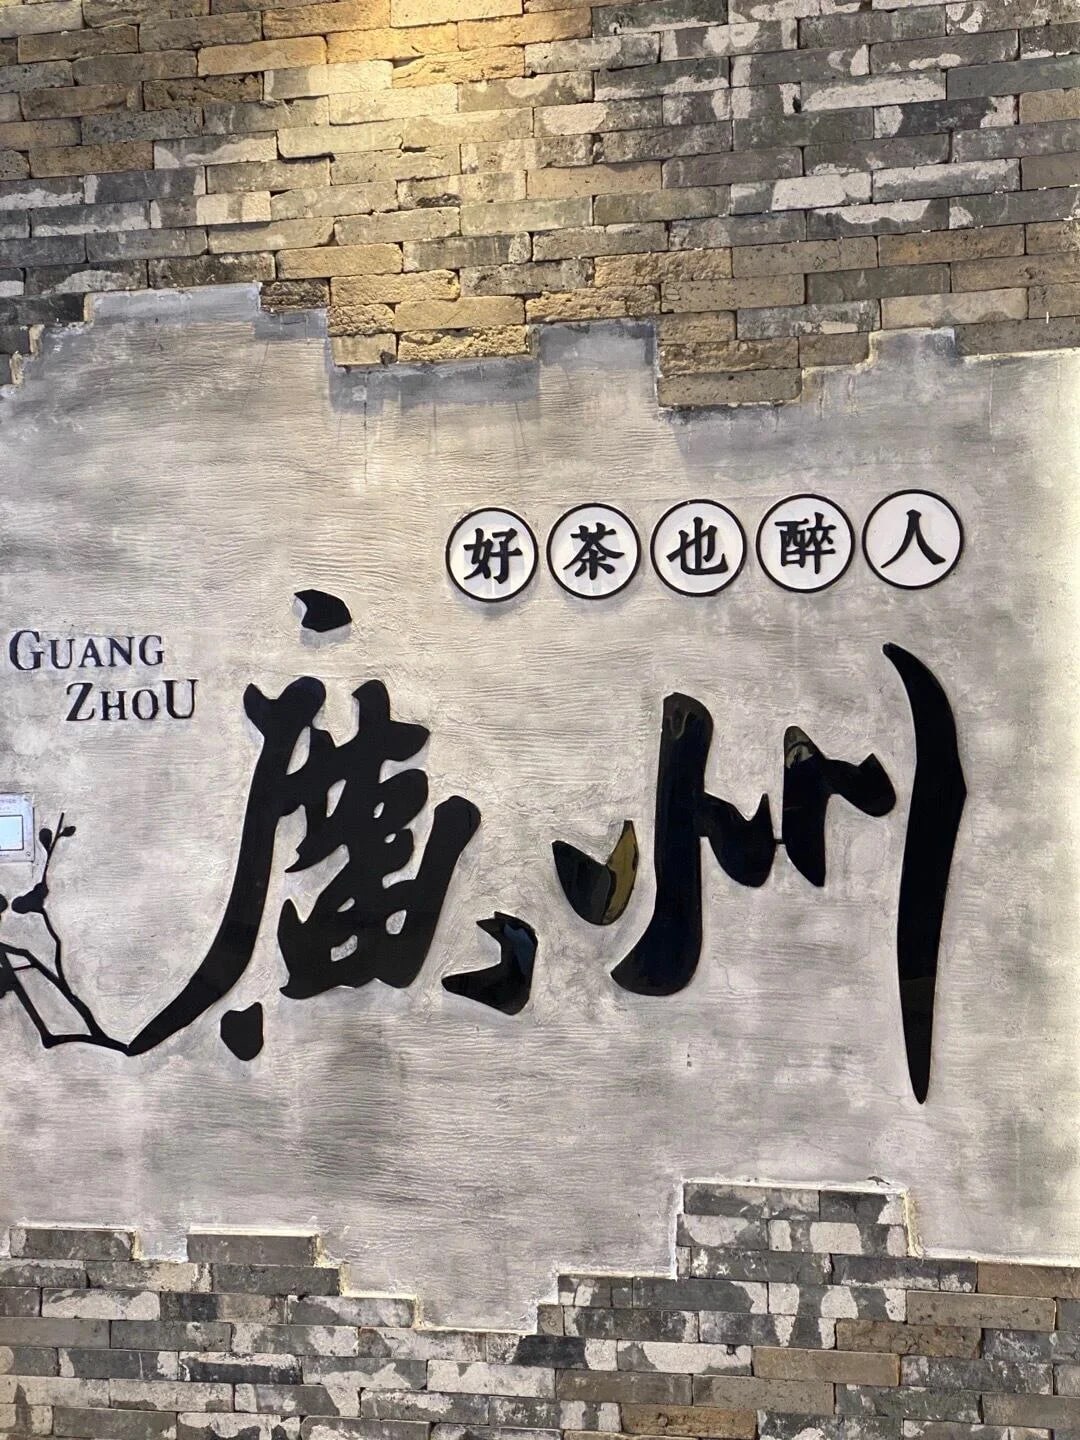 好茶也醉人
GUANG
ZHOU
廣州